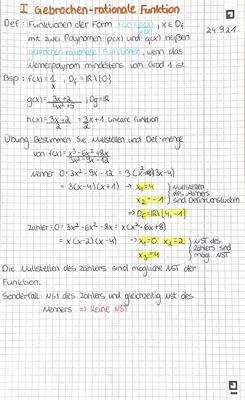 I Gebrochen-rationale Funktion
24.9.21
Def: Funktionen der Form f(x) = p(x)/q(x), x ∈ Df
mit zwei Polynomen p(x) und q(x) heißen
gebrochen-rationale Funktionen, wenn das
Nennerpolynom mindestens vom Grad 1 ist.
Bsp: f(x) = 1/x ; Df = ℝ\{0}
g(x) = 3x+2/4x²+5 ; Dg = ℝ
h(x) = 3x+2/2 = 3/2x+1 Lineare Funktion
Übung: Bestimmen Sie Nullstellen und Def-menge
von f(x) = x³-6x²+8x/3x²-9x-12
Nenner 0 = 3x²-9x-12
= 3(x-4)(x+1) → x₁=4
Nullstellen
des Nenners
sind Definitionslücken
→ Df = ℝ\{4,-1}
= x(x-2)(x-4) → x₁=0 x₂=2
x₃=4
NST des
Zählers sind
mögl. NST
Die Nullstellen des Zählers sind mögliche NST der
Funktion.
Sonderfall: NST des Zählers und gleichzeitig NST des
Nenners ⇒ keine NST